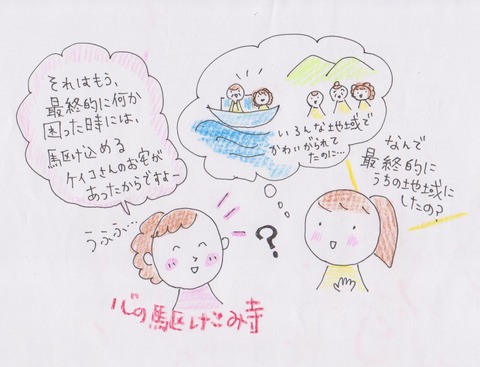 なんで
最終的に
うちの地域に
したの?
いろんな地域で
かわいがられて
たのに…
?
それはもう、
最終的に何か
困った時には、
駆け込める
ケイコさんのお宅が
あったからですよー
うふふ…
心の駆けこみ寺